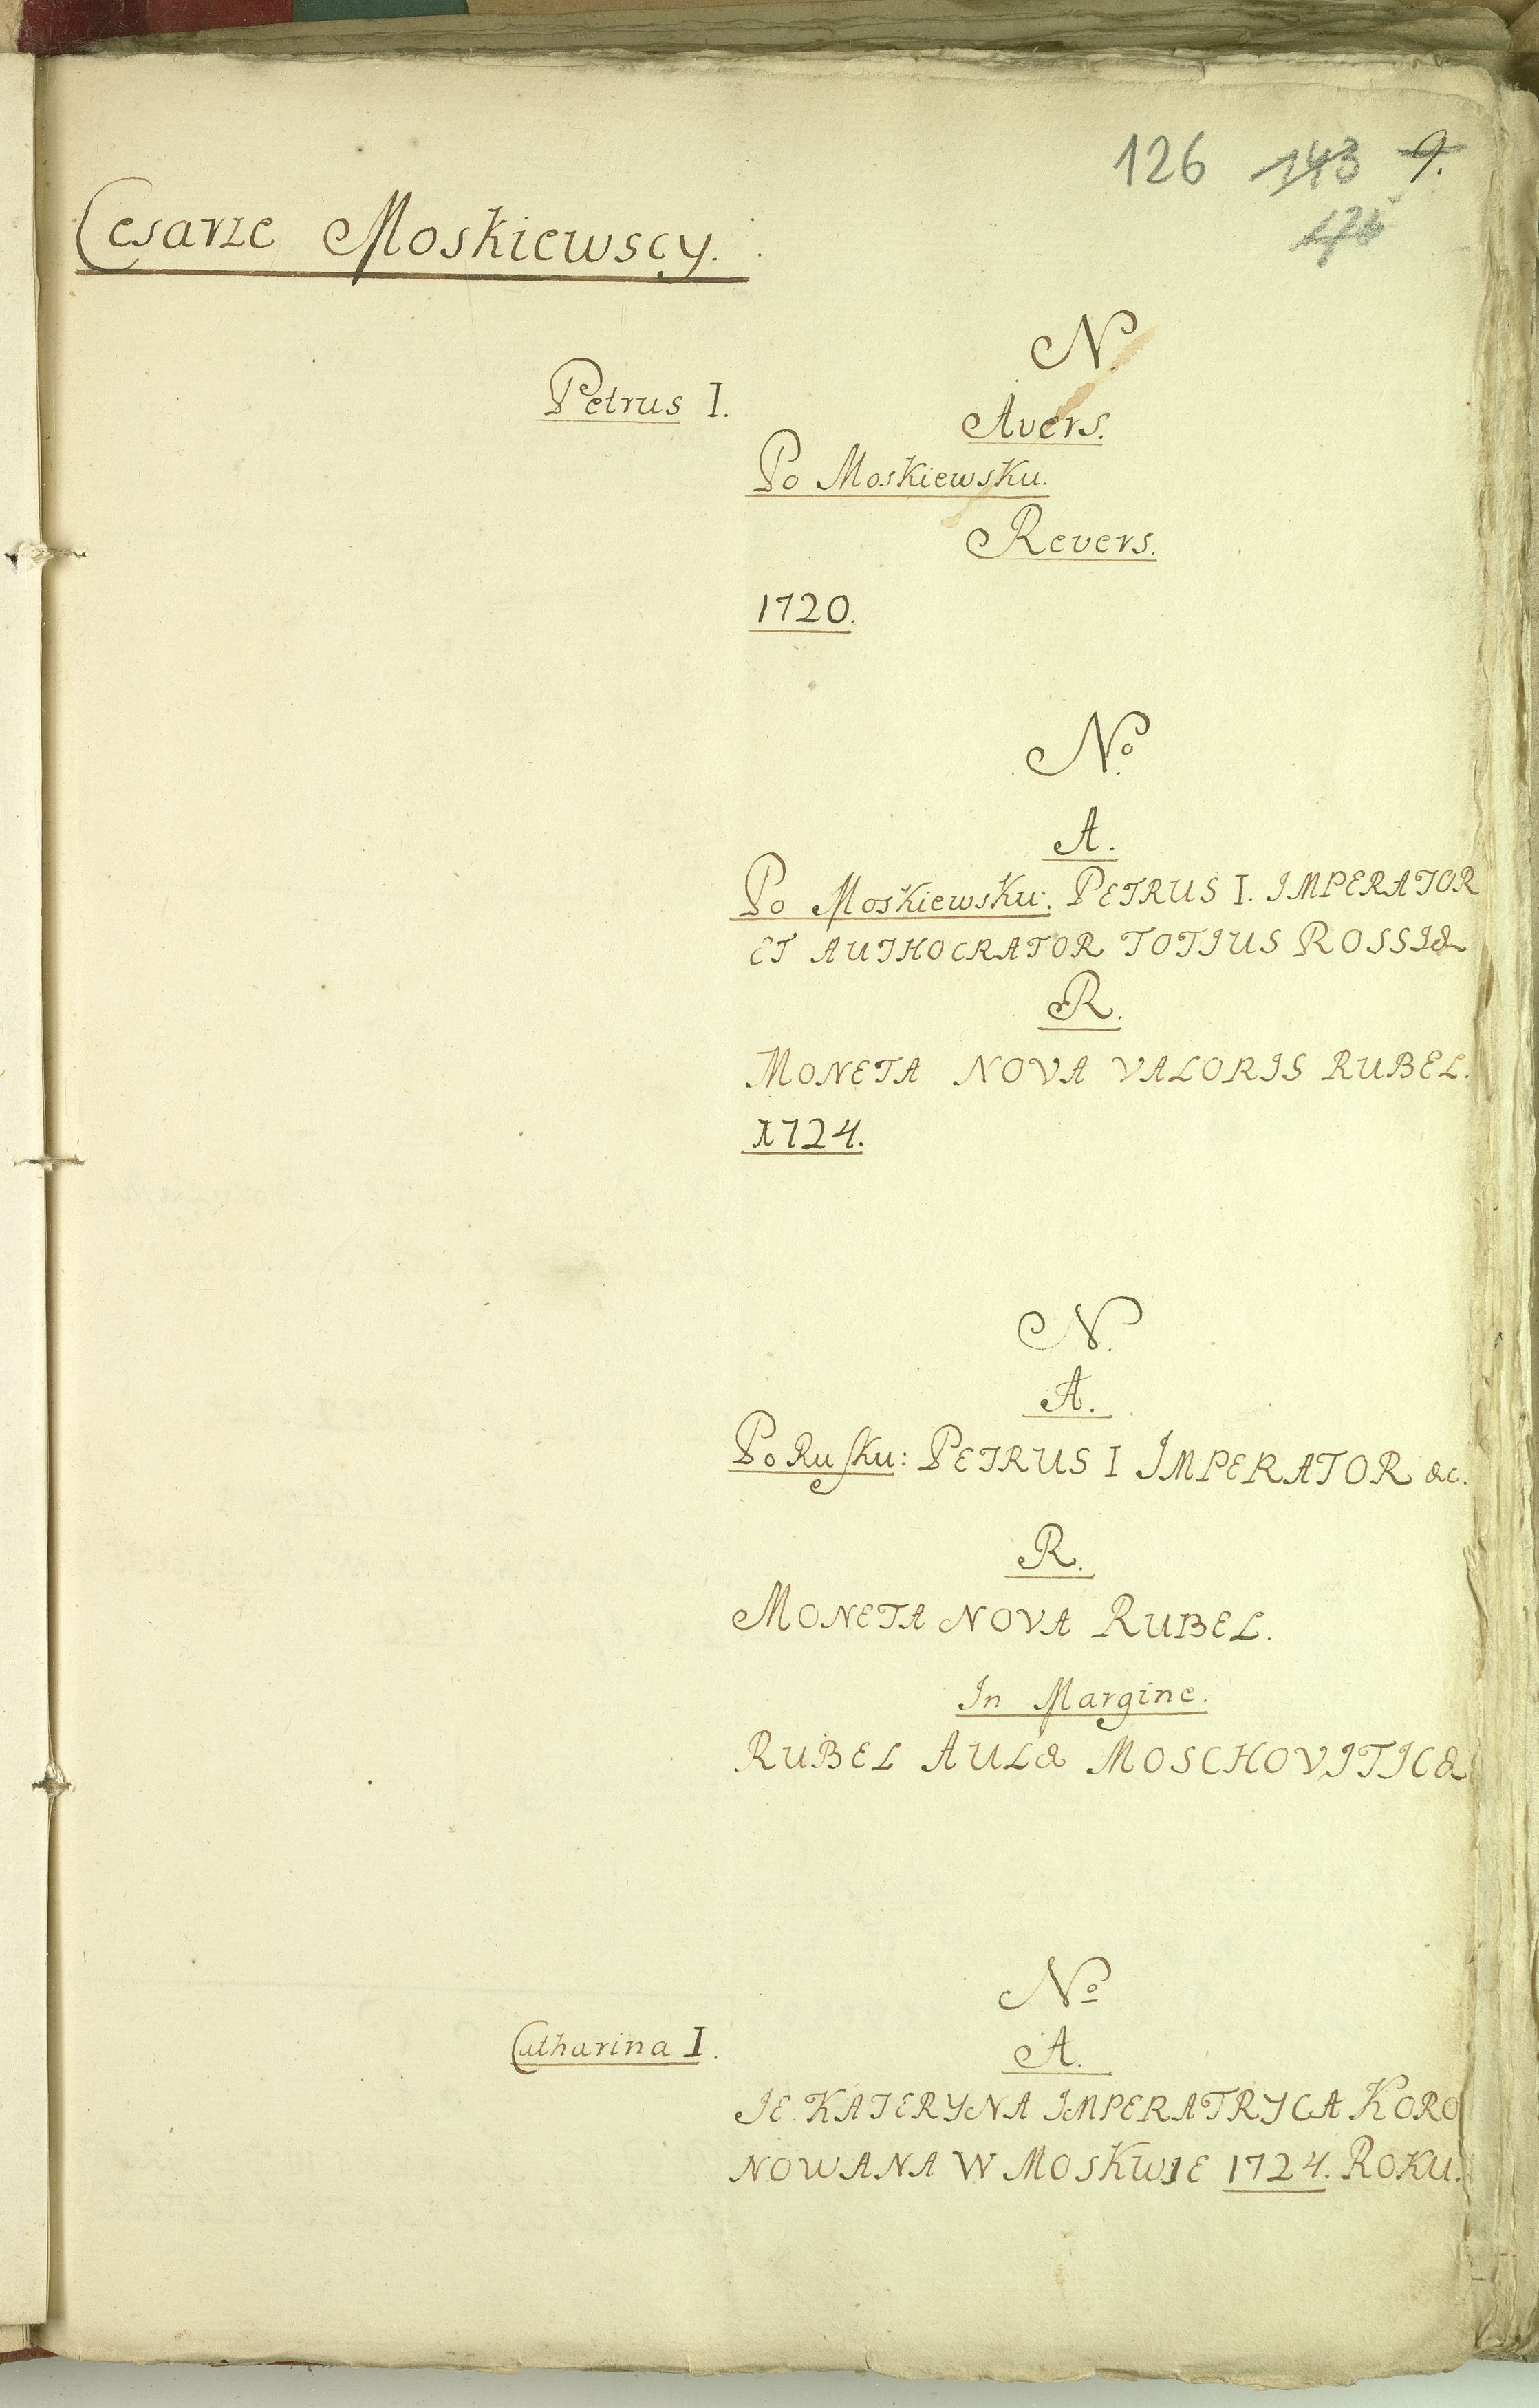 126 143 9.
Cesarze Moskiewscy.
N.
Petrus I.
Avers.
Po Moskiewsku.
Revers.
1720.
No.
A.
Po Moskiewsku: PETRUS I. IMPERATOR
ET AUTHOCRATOR TOTIUS ROSSIÆ
R.
MONETA NOVA VALORIS RUBEL.
1724.
N.
A.
Po Ruſku: PETRUS I IMPERATOR &c.
R.
MONETA NOVA RUBEL.
In Margine.
RUBEL AULÆ MOSCHOVITICÆ
No
Catharina I.
A.
IE. KATERYNA IMPERATRYCA KORO
NOWANA W MOSKWIE 1724. ROKU.